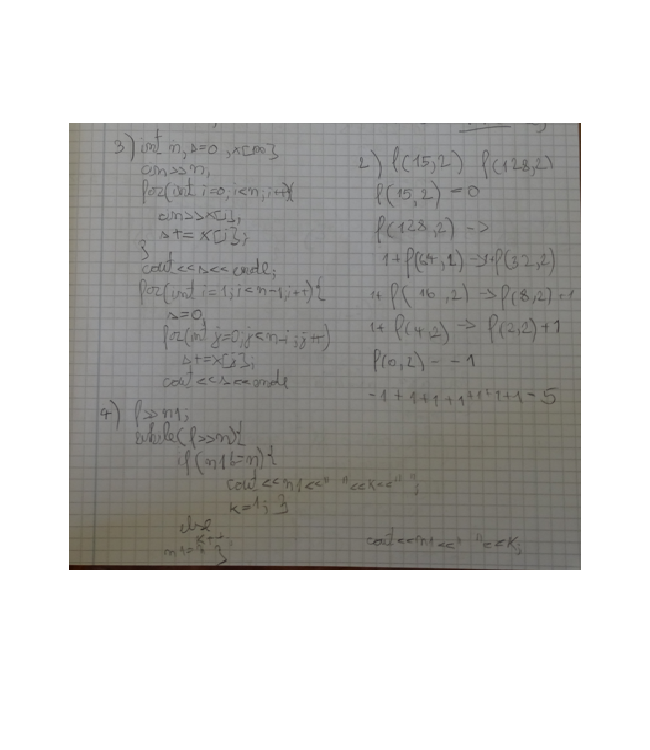 3) int n, s=0, x[100];
cin>>n;
for(int i=0; i<n; i++){
cin>>x[i];
s+=x[i];
}
cout<<s<<endl;
for(int i=1; i<n-1; i++){
s=0;
for(int j=0; j<n-i; j++)
s+=x[j];
cout<<s<<endl
4) f>>n1;
while(f>>n){
if(n1 =n){
cout<<n1<<" "<<k<<" ";
k=1; }
else
k++;
n1=n }
2) f(15,2) f(128,2)
f(15,2) =0
f(128,2) ->
1+f(64,2) -> f(32,2)
1+f(16,2) -> f(8,2)
1+f(4,2) -> f(2,2)+1
f(0,2) = -1
-1+1+1+1 +1 = 5
cout<<n1<<" "<<k;